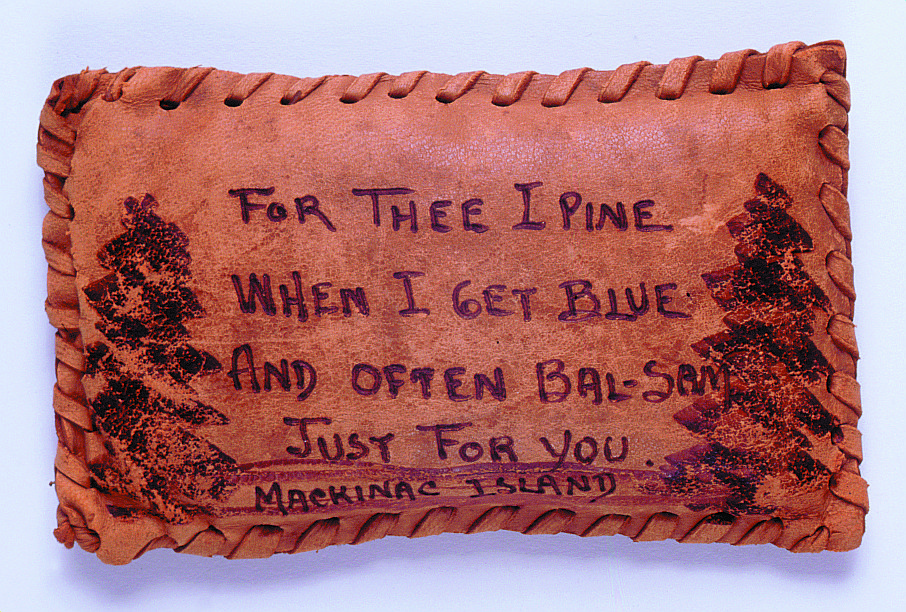 FOR THEE I PINE
WHEN I GET BLUE
AND OFTEN BAL-SAM
JUST FOR YOU.
MACKINAC ISLAND